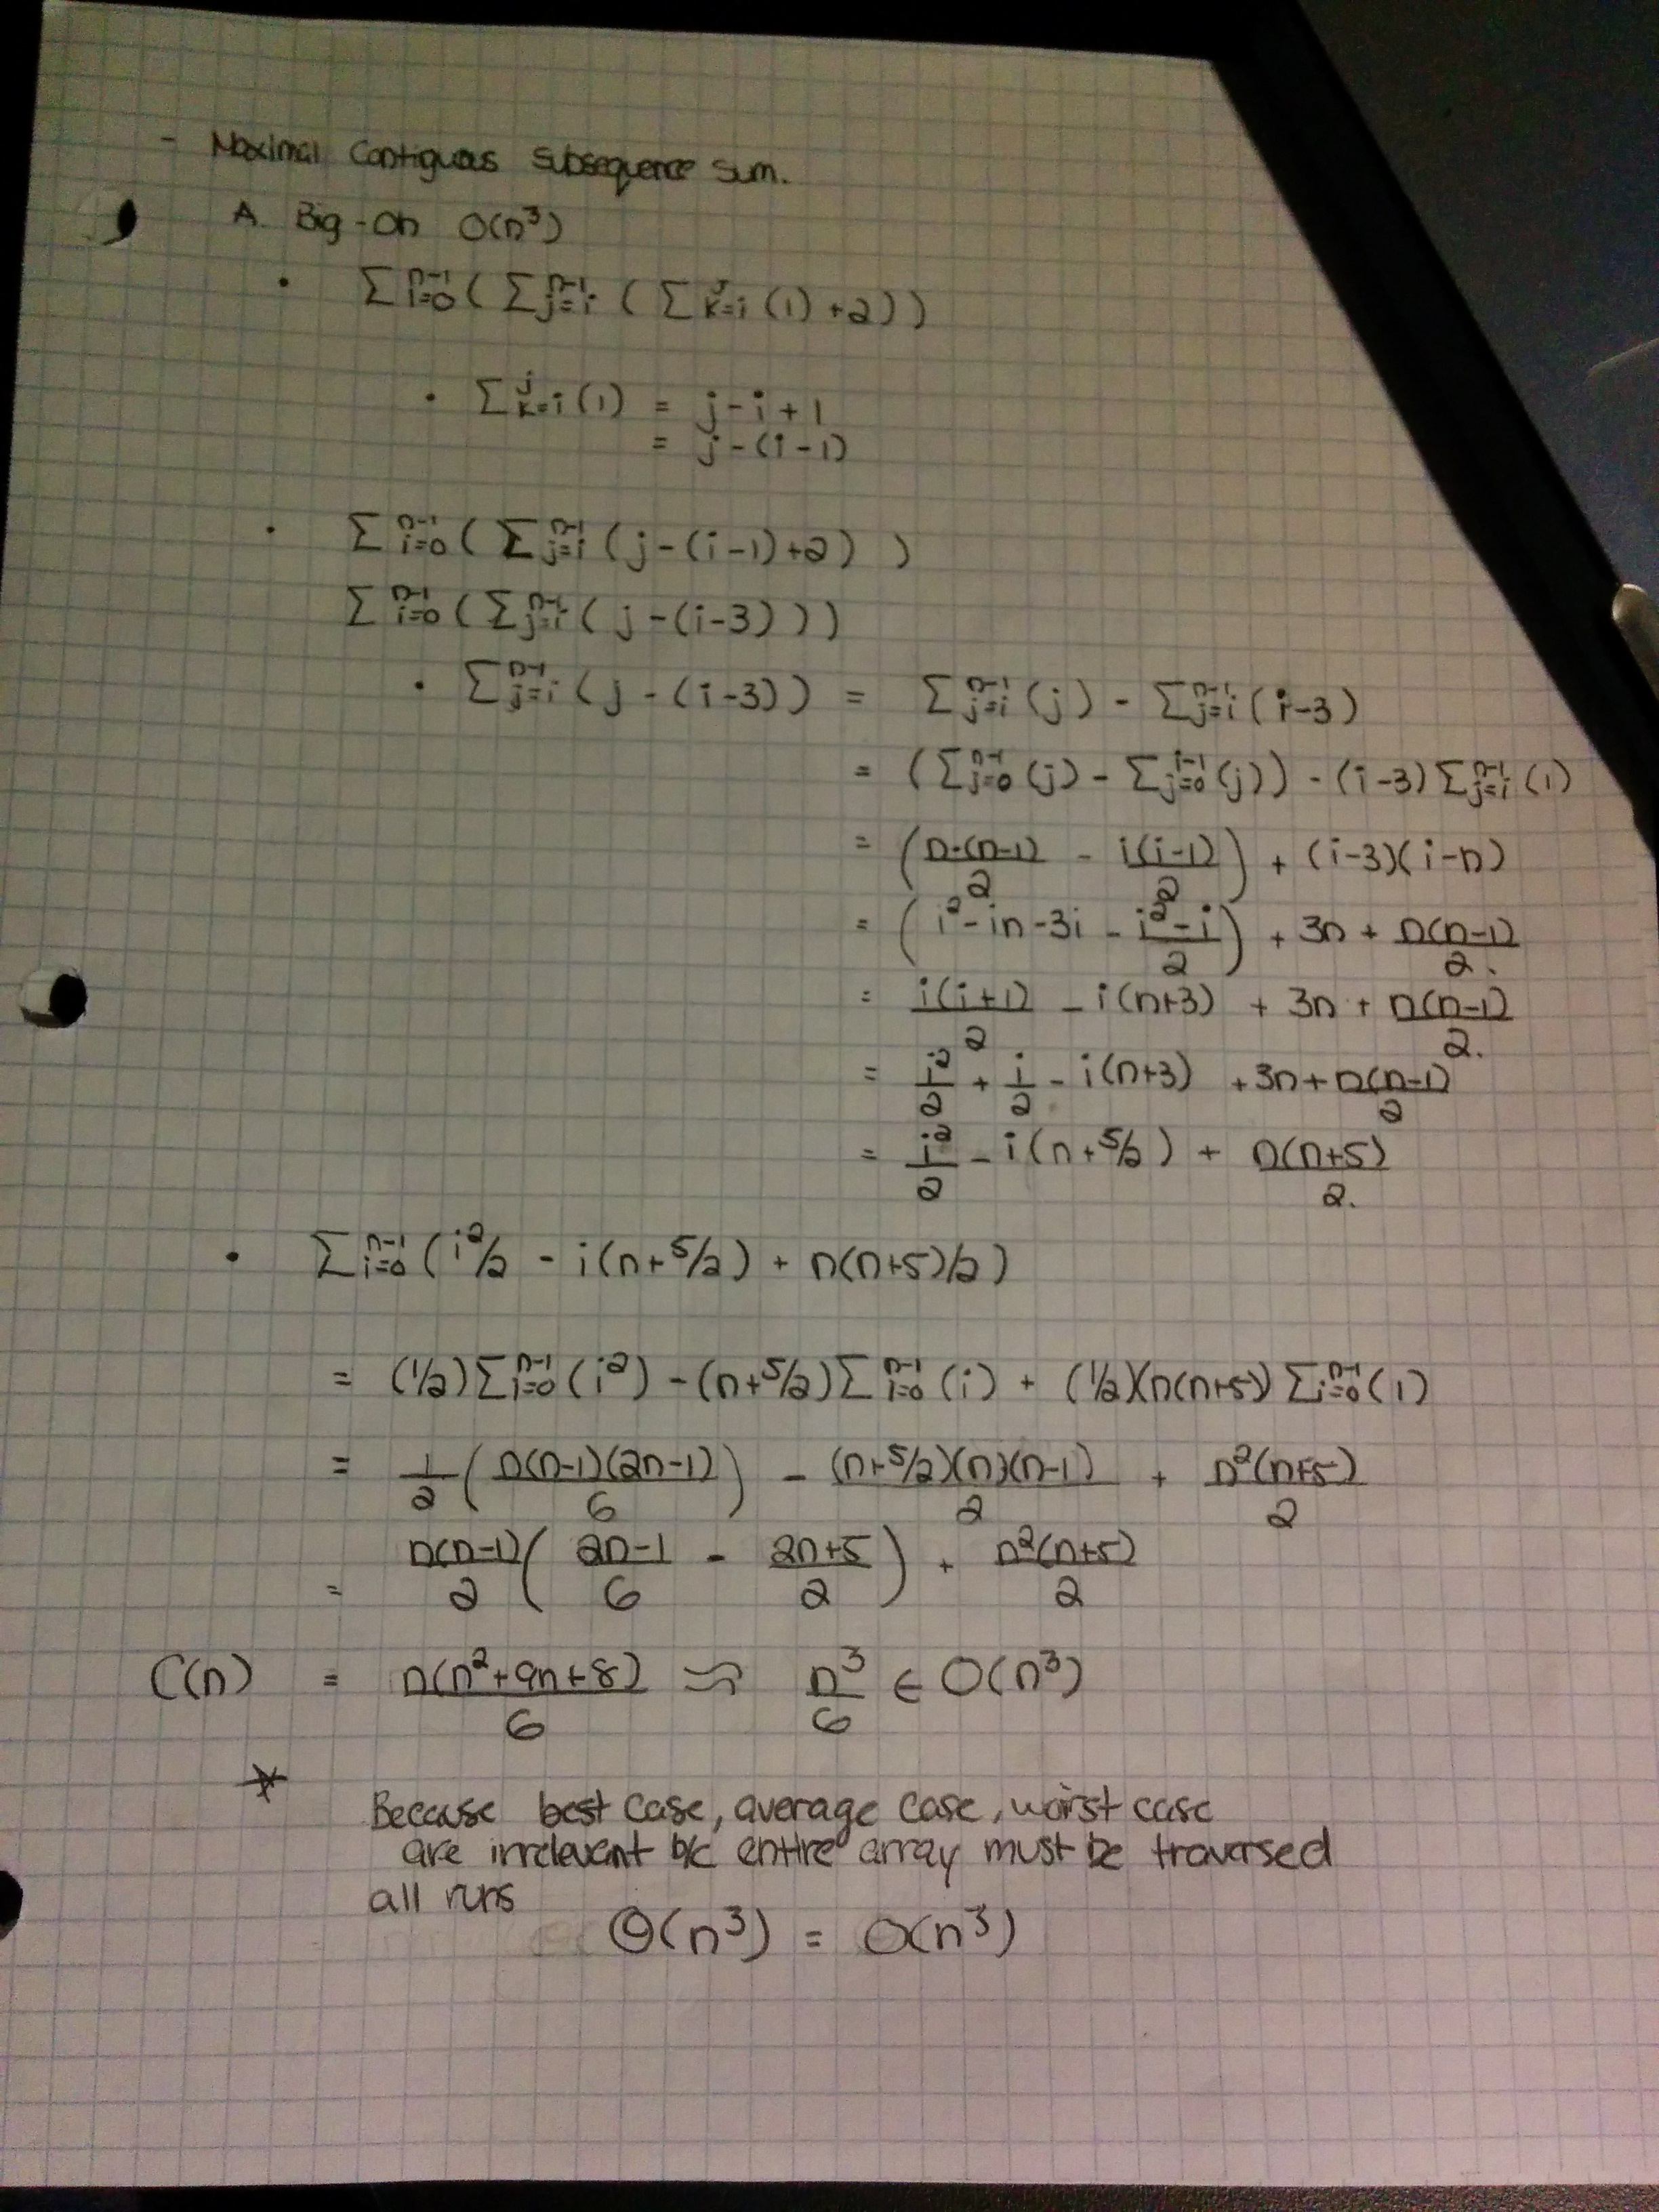 - Maximal Contiguous Subsequence Sum.
A. Big-Oh O(n³)
• Σ_{i=0}^{n-1} ( Σ_{j=i}^{n-1} ( Σ_{k=i}^{j} (1) +2 ) )
• Σ_{k=i}^{j} (1) = j-i+1
= j-(i-1)
• Σ_{i=0}^{n-1} ( Σ_{j=i}^{n-1} ( j-(i-1)+2 ) )
Σ_{i=0}^{n-1} ( Σ_{j=i}^{n-1} ( j-(i-3) ) )
• Σ_{j=i}^{n-1} ( j-(i-3) ) = Σ_{j=i}^{n-1} (j) - Σ_{j=i}^{n-1} (i-3)
= ( Σ_{j=0}^{n-1} (j) - Σ_{j=0}^{i-1} (j) ) - (i-3) Σ_{j=i}^{n-1} (1)
= ( n·(n-1)/2 - i(i-1)/2 ) + (i-3)(i-n)
= ( i²-in-3i - (i²-i)/2 ) + 3n + n(n-1)/2.
= i(i+1)/2 - i(n+3) + 3n + n(n-1)/2.
= i²/2 + i/2 - i(n+3) +3n + n(n-1)/2
= i²/2 - i(n+5/2) + n(n+5)/2.
• Σ_{i=0}^{n-1} ( i²/2 - i(n+5/2) + n(n+5)/2 )
= (1/2) Σ_{i=0}^{n-1} (i²) - (n+5/2) Σ_{i=0}^{n-1} (i) + (1/2)(n(n+5)) Σ_{i=0}^{n-1} (1)
= 1/2 ( n(n-1)(2n-1)/6 ) - (n+5/2)(n)(n-1)/2 + n²(n+5)/2
= n(n-1)/2 ( (2n-1)/6 - (2n+5)/2 ) + n²(n+5)/2
C(n) = n(n²+9n+8)/6 ≈ n³/6 ∈ O(n³)
* Because best case, average case, worst case
are irrelevant b/c entire array must be traversed
all runs
Θ(n³) = O(n³)